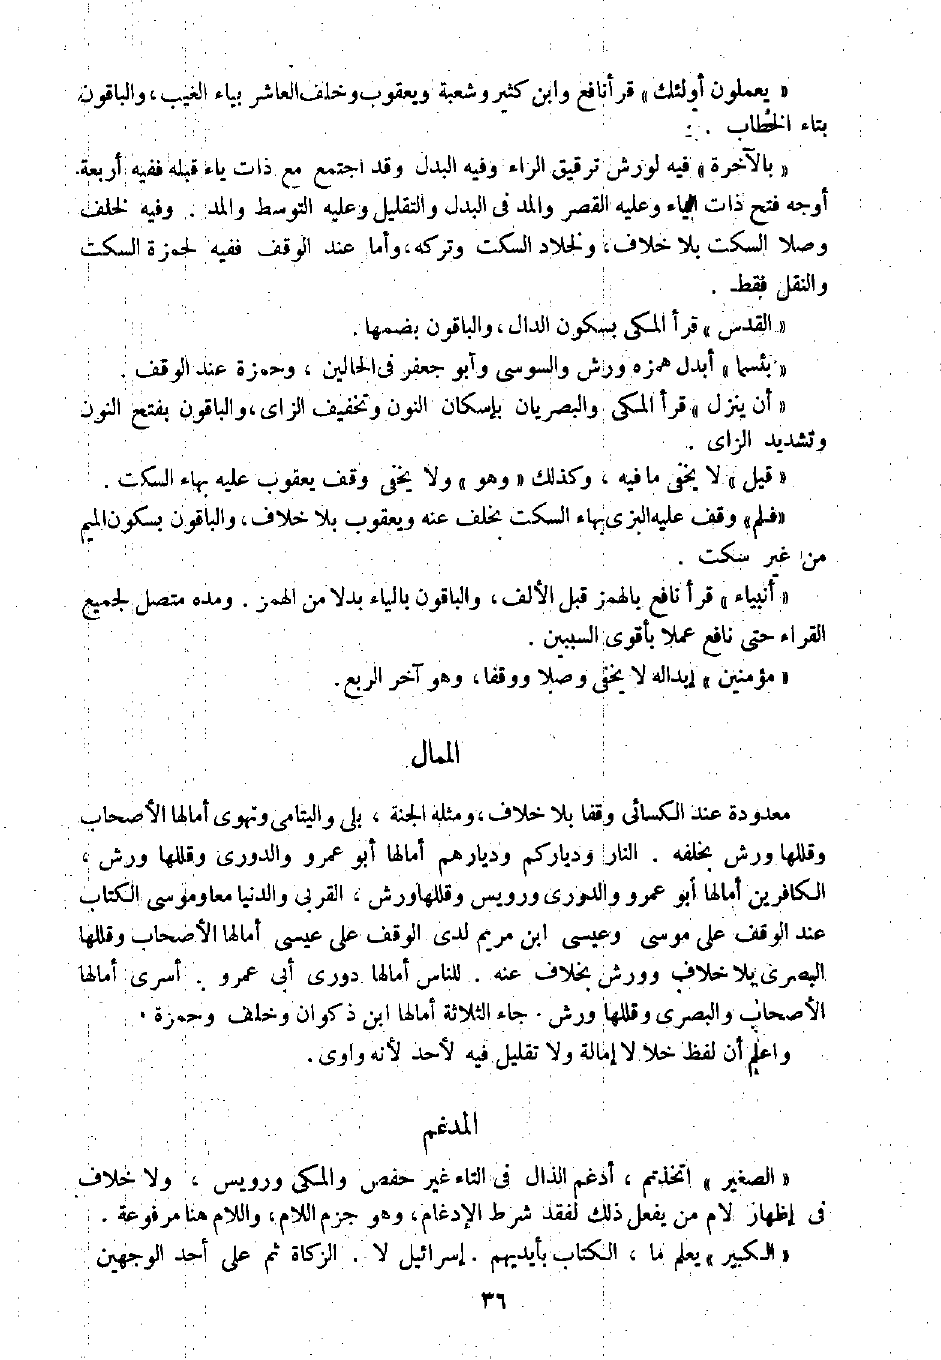 « يعملون أولئك » قرأ نافع وابن كثير وشعبة ويعقوب وخلف العاشر بياء الغيب، والباقون
بتاء الخطاب .
« بالآخرة » فيه لورش ترقيق الراء وفيه البدل وقد اجتمع مع ذات ياء قبله ففيه أربعة
أوجه فتح ذات الياء وعليه القصر والمد فى البدل والتقليل وعليه التوسط والمد . وفيه لخلف
وصلا السكت بلا خلاف، ولخلاد السكت وتركه، وأما عند الوقف ففيه لحمزة السكت
والنقل فقط .
« القدس » قرأ المكى بسكون الدال، والباقون بضمها .
« بئسما » أبدل همزه ورش والسوسى وأبو جعفر فى الحالين ، وحمزة عند الوقف .
« أن ينزل » قرأ المكى والبصريان بإسكان النون وتخفيف الزاى، والباقون بفتح النون
وتشديد الزاى .
« قيل » لا يخفى ما فيه ، وكذلك « وهو » ولا يخفى وقف يعقوب عليه بهاء السكت .
« فلم » وقف عليه البزى بهاء السكت بخلف عنه ويعقوب بلا خلاف، والباقون بسكون الميم
من غير سكت .
« أنبياء » قرأ نافع بالهمز قبل الألف، والباقون بالياء بدلا من الهمز . ومده متصل لجميع
القراء حتى نافع عملا بأقوى السببين .
« مؤمنين » إبداله لا يخفى وصلا ووقفا، وهو آخر الربع.
الممال
معدودة عند الكسائى وقفا بلا خلاف، ومثله الجنة ، بلى واليتامى وتهوى أمالها الأصحاب
وقللها ورش بخلفه . النار ودياركم وديارهم أمالها أبو عمرو والدورى وقللها ورش ،
الكافرين أمالها أبو عمرو والدورى ورويس وقللها ورش ، القربى والدنيا معا وموسى الكتاب
عند الوقف على موسى وعيسى ابن مريم لدى الوقف على عيسى أمالها الأصحاب وقللها
البصرى بلا خلاف وورش بخلاف عنه . للناس أمالها دورى أبى عمرو . أسرى أمالها
الأصحاب والبصرى وقللها ورش . جاء الثلاثة أمالها ابن ذكوان وخلف وحمزة .
واعلم أن لفظ خلا لا إمالة ولا تقليل فيه لأحد لأنه واوى .
المدغم
« الصغير » اتخذتم ، أدغم الذال فى التاء غير حفص والمكى ورويس ، ولا خلاف
فى إظهار لام من يفعل ذلك لفقد شرط الإدغام، وهو جزم اللام، واللام هنا مرفوعة .
« الكبير » يعلم ما ، الكتاب بأيديهم . إسرائيل لا . الزكاة ثم على أحد الوجهين
٣٦